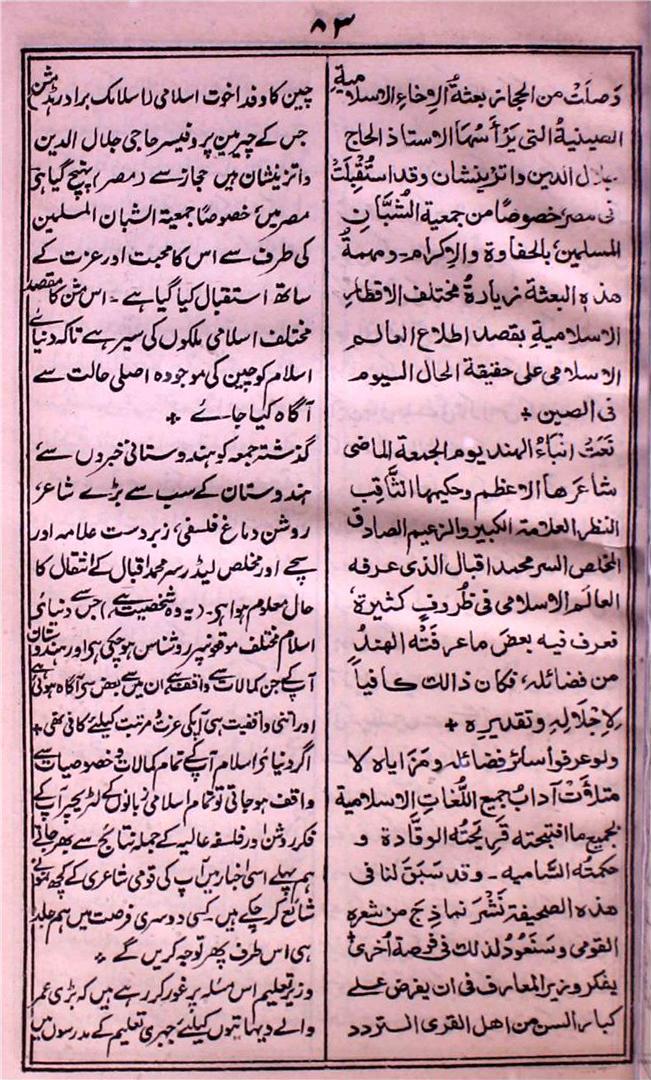 ۸۳
وَصلَتْ من الحجاز بعثةُ الإخاءِ الاسلامیةِ
الصینیةُ التی یَرْأسُهَا الاستاذ الحاج
جلال الدین وانزینشان وقد استُقْبِلَتْ
فی مصرَ خصوصًا من جمعیة الشُّبَّانِ
المسلمین، بالحفاوة والإکرام - ومهمةُ
هذه البعثة زیارةُ مختلف الاقطارِ
الاسلامیةِ بقصد اطلاع العالمِ
الاسلامی علی حقیقة الحال الیوم
فی الصین +
نَعَتْ انباءُ الهند یوم الجمعة الماضی
شاعرَها الاعظم وحکیمها الثَّاقِبَ
النظر العلامة الکبیر والزعیم الصادق
المخلص السر محمد اقبال الذی عرفه
العالَم الاسلامی فی ظُروفٍ کثیرة،
فعرف فیه بعضَ ما عرفَتْه الهندُ
من فضائله، فکان ذالک کافیاً
لِإجْلالِهِ وتقدیره +
ولو عرفوا سائرَ فضائله ومَزَایاه لا
متلأت آدابُ جمیع اللُّغاتِ الاسلامیة
بجمیع ما افتجته قَرِیحَتُه الوقَّادة و
حکمتُه السَّامیه - وقد سَبَقَ لنا فی
هذه الصحیفة نَشْرَ نماذِجَ من شعره
القومی وسَنَعُودُ لذلک فی فرصة أخری
یفکر وزیر المعارف فی ان یفرض علی
کبار السن من اهل القری التردد
چین کا وفد اخوت اسلامی (اسلامک برادرہڈ مشن
جس کے چیرمین پروفیسر حاجی جلال الدین
وانزینشان ہیں حجاز سے (مصر) پہنچ گیا ہی
مصر میں، خصوصًا جمعیة الشبان المسلمین
کی طرف سے اس کا محبت اور عزت کے
ساتھ استقبال کیا گیا ہے - اس مشن کا مقصد
مختلف اسلامی ملکوں کی سیر ہے تاکہ دنیائے
اسلام کو چین کی موجودہ اصلی حالت سے
آگاہ کیا جائے +
گذشتہ جمعہ کو ہندوستانی خبروں سے،
ہندوستان کے سب سے بڑے شاعر،
روشن دماغ فلسفی، زبردست علامہ اور
سچے اور مخلص لیڈر سر محمد اقبال کے انتقال کا
حال معلوم ہوا ہی - (یہ وہ شخصیت ہے) جس سے دنیای
اسلام مختلف موقعونپر روشناس ہوچکی ہی اور ہندوستان
آپ کے جن کمالات سے واقف ہے ان میں سے بعض سے آگاہ ہوئی ہے
اور اتنی واقفیت ہی آپکی عزت و مرتبت کیلئے کافی تھی +
اگر دنیای اسلام آپ کے تمام کمالات و خصوصیات سے
واقف ہوجاتی تو تمام اسلامی زبانوں کے لٹریچر آپ کے
فکر روشن اور فلسفہ عالیہ کے جملہ نتائج سے بھر جاتے
ہم پہلے اسی اخبار میں آپ کی قومی شاعری کے کچھ نمونے
شائع کرچکے ہیں - کسی دوسری فرصت میں ہم جلد
ہی اس طرف پھر توجہ کریں گے +
وزیر تعلیم اس مسئلہ پر غور کررہے ہیں کہ بڑی عمر
والے دیہاتیوں کیلئے جبری تعلیم کے مدرسوں میں